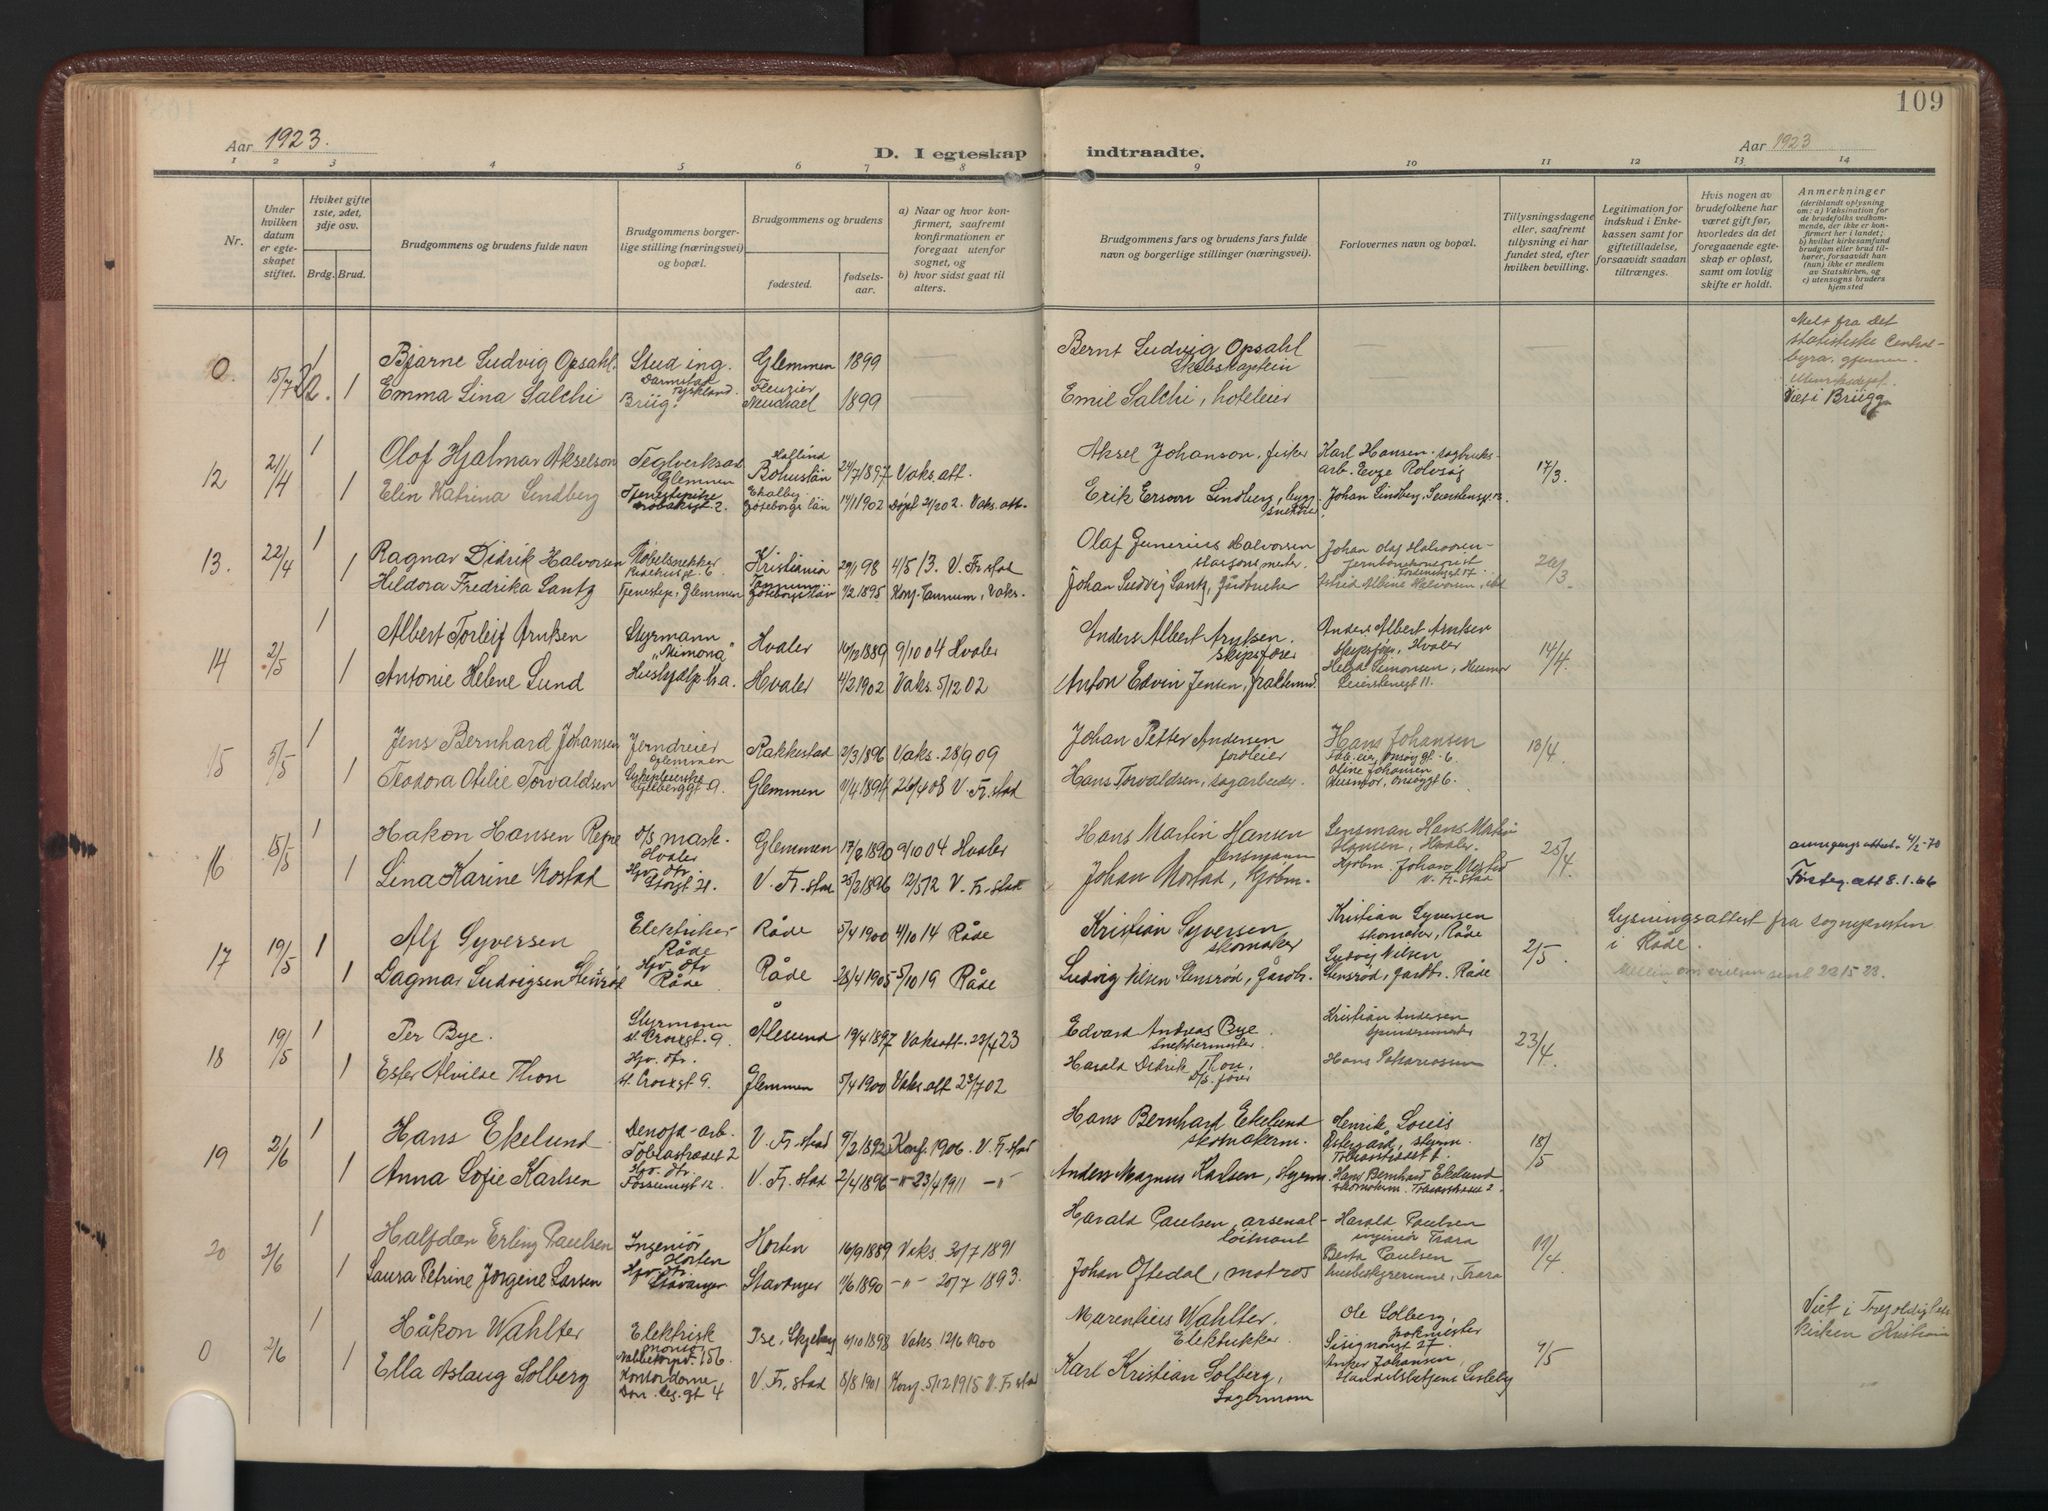 109
Aar 1923.
D. I egteskap indtraadte.
Aar 1923
1 2 3 4 5 6 7 8 9 10 11 12 13 14
Nr.
Under hvilken datum er egteskapet stiftet.
Hviket gifte 1ste, 2det, 3dje osv.
Brdg. Brud.
Brudgommens og brudens fulde navn
Brudgommens borgerlige stilling (næringsvei) og bopæl.
Brudgommens og brudens
fødested.
fødselsaar.
a) Naar og hvor konfirmert, saafremt konfirmationen er foregaat utenfor sognet, og
b) hvor sidst gaat til alters.
Brudgommens fars og brudens fars fulde navn og borgerlige stillinger (næringsvei).
Forlovernes navn og bopæl.
Tillysningsdagene eller, saafremt tillysning ei har fundet sted, efter hvilken bevilling.
Legitimation for indskud i Enkekassen samt for giftetilladelse, forsaavidt saadan tiltrænges.
Hvis nogen av brudefolkene har været gift før, hvorledes da det foregaaende egteskap er opløst, samt om lovlig skifte er holdt.
Anmerkninger
(deriblandt oplysning om: a) Vaksination for de brudefolks vedkommende, der ikke er konfirmert her i landet; b) hvilket kirkesamfund brudgom eller brud tilhører, forsaavidt han (hun) ikke er medlem av Statskirken, og c) utensogns bruders hjemsted
0. 15/7 1 Bjarne Ludvig Opsahl. Stud ing. Glemmen 1899 Bernt Ludvig Opsahl Skibskaptein
Melt fra Det statistiske Central-byrå. gjennem
1 Emma Lina Salchi Brüg. Fleurier 1899 Emil Salchi, hoteleier
Viet i Brügg
12 21/4 1 Olof Hjalmar Akselson Teglverksarb Glemmen Bohuslän 24/7 1897 Vaks. att. Aksel Johanson, fisker Karl Hansen 17/3
1 Elin Katrina Lindberg Göteborgs län 14/1 1902 Vaks. att. Erik Lindberg, Johan Lindberg,
13. 22/4 1 Ragnar Didrik Halvorsen Møbelsnekker Kristiania 29/1 98 4/5 13. V. Fr.stad Olaf Gunerius Halvorsen stasjonsmester Johan Olaf Halvorsen 20/3
1 Hildora Fredrika Lantz Tjenestep. Glemmen Göteborgs län 1/2 1895 Konf. Tannum, Vaks. Johan Ludvig Lantz, Jordbruker
14 2/5 1 Albert Torleif Arntsen Styrmann "Mimona" Hvaler 16/12 1889 9/10 04 Hvaler Anders Albert Arntsen. skipsfører Anders Albert Arntsen Skipsfør., Hvaler 14/4
1 Antonie Helene Lund Hushjelp h.a. Hvaler 4/2 1902 Vaks. 5/12 02 Anton Edvin Jensen, fraktemd. Helga Simonsen,
15 5/5 1 Jens Bernhard Johansen Jerndreier Glemmen Rakkestad 2/3 1896 Vaks. 28/9 09 Johan Petter Andersen jordleier Hans Johansen 13/4
1 Teodora Otilie Torvaldsen Sykepleierske Glemmen 11/4 1894 26/4 08 V. Fr.stad Hans Torvaldsen, sagarbeider. Oline Johansen
16 15/5 1 Hakon Hansen Regne Hvaler Glemmen 17/2 1890 9/10 04 Hvaler Hans Martin Hansen lensmann Lensman Hans Martin Hansen, Hvaler. 25/4
1 Lina Karine Mostad Hjv. dtr. Storgt 21. V. Fr.stad 25/2 1896 12/5 12 V. Fr.stad Johan Mostad, Kjøbm. Kjøbm. Johan Mostad V. Fr.stad
att 8.1.66
17 19/5 1 Alf Syversen Elektriker Råde Råde 5/4 1900 4/10 14 Råde Kristian Syversen skomaker Kristian Syversen skomaker, Råde 2/5 Lysningsattest fra sognepresten i Råde.
1 Dagmar Ludvigsen Stensrød Hjv. dtr Råde Råde 28/4 1905 5/10 19 Råde Ludvig Nilsen Stensrød, Gårdbr. Ludvig Nilsen Stensrød, Gardbr. Råde
18 19/5 1 Per Bye. Styrmann St. Croixgt. 9 Ålesund 19/4 1897 Vaksatt. 23/4 23 Edvard Andreas Bye. Snekkermester Kristian Andersen 23/4
1 Ester Alvilde Thon Hjv. dtr. St. Croixgt 9. Glemmen 5/4 1900 Vaks. att 29/7 02 Harald Didrik Thon, D/S. fører Hans Sakariassen
19 2/6 1 Hans Ekelund. Denofa-arb. Tobiastrædet 2 V. Fr. stad 9/2 1892 Konf. 1906. V. Fr. stad Hans Bernhard Ekelund skomakerm. Henrik Louis Østergård, styrm. 18/5
1 Anna Sofie Karlsen Hjv. dtr. V. Fr. stad 2/4 1896 -"- 23/4 1911 -"- Anders Magnus Karlsen, Styrm. Hans Bernhard Ekelund skomakerm.
20 2/6 1 Halfdan Erling Paulsen Ingeniør Horten Horten 16/9 1889 Vaks. 30/7 1891 Harald Paulsen, arsenal-løitnant Harald Paulsen ingeniør Trara 19/4
1 Laura Petrine Jørgine Larsen Hjv. dtr. Stavanger Stavanger 11/6 1890 -"- 20/7 1893. Johan Oftedal, matros Berta Paulsen husbestyrerinne, Trara
0 2/6 1 Håkon Wahlter Elektrisk montør Nabbetorpv. 156. Ise, Skjeberg 4/10 1898 Vaks. 12/6 1900 Marentius Wahlter. Elektrikker. Ole Solberg, pakmester 9/5 Viet i Trefoldighetskirken Kristiania
1 Ella Aslaug Solberg Kontordame V. Fr. stad 8/8 1901 Konf. 5/12 1915 V. Fr. stad Karl Kristian Solberg, Lagermann Anker Johansen, Handelsbetjent Lisleby